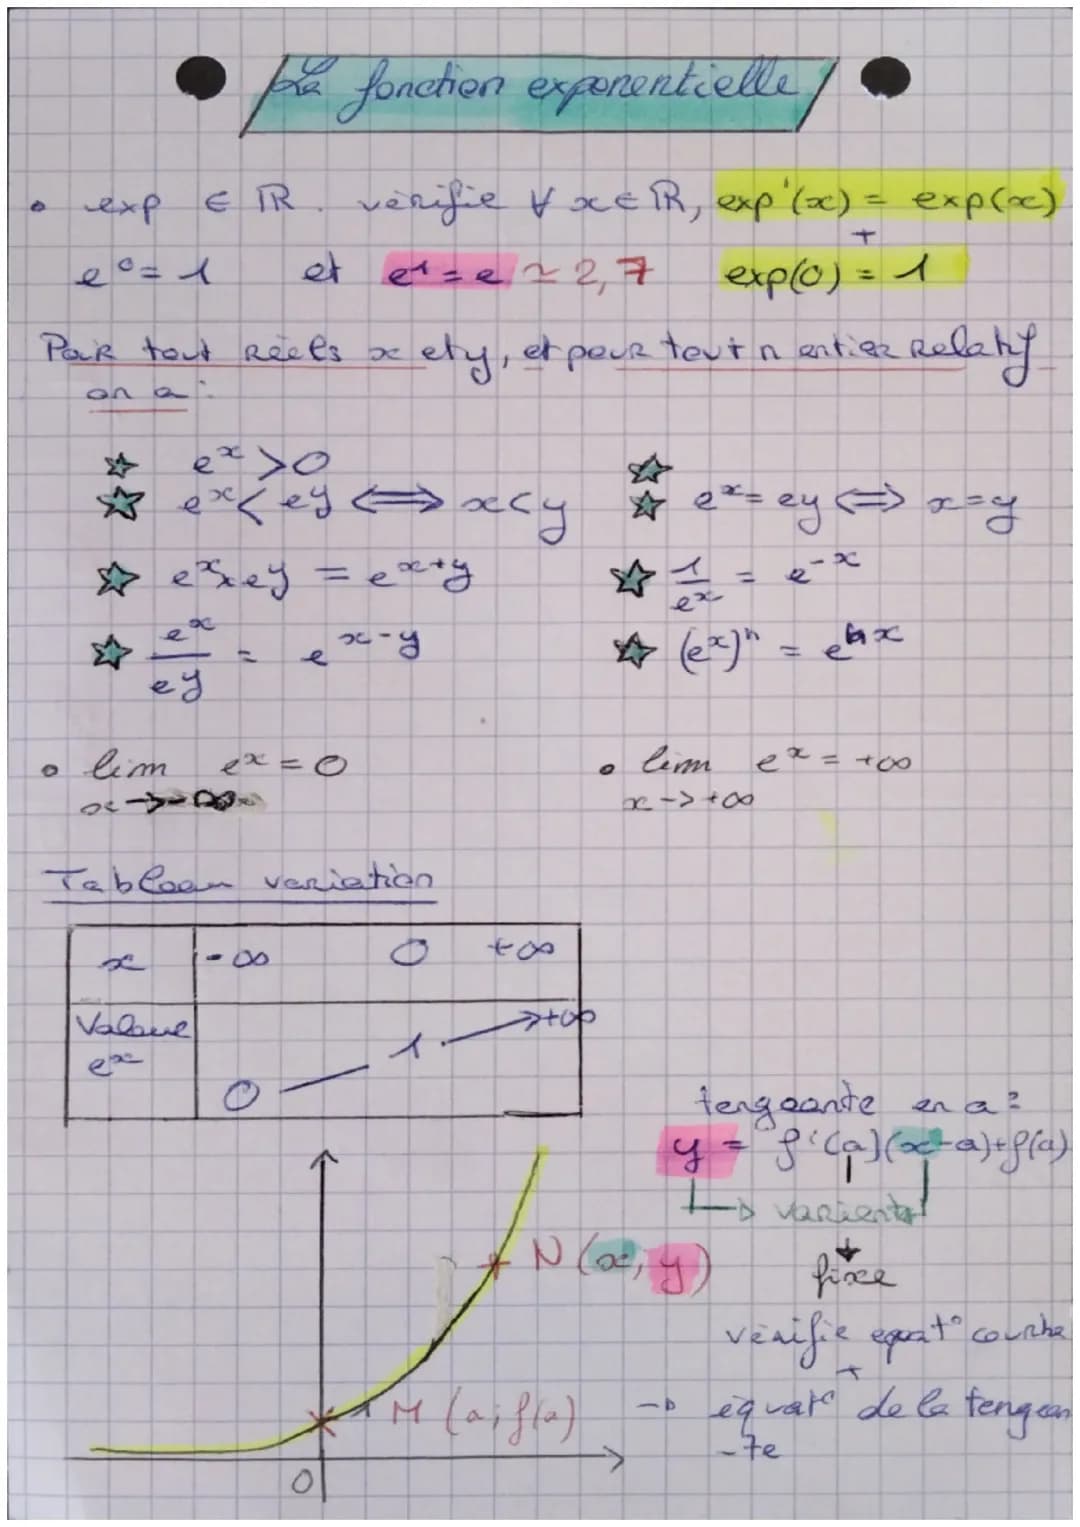 La fonction exponentielle
• exp ∈ ℝ. vérifie ∀ x ∈ ℝ, exp'(x) = exp(x)
+
e⁰ = 1 et e¹ = e ≃ 2,7 exp(0) = 1
Pour tout réels x et y, et pour tout n entier relatif
on a :
☆ e^x > 0 ☆
☆ e^x < e^y ⟺ x < y ☆ e^x = e^y ⟺ x = y
☆ e^x × e^y = e^(x+y) ☆ 1/e^x = e^(-x)
☆ e^x/e^y = e^(x-y) ☆ (e^x)^n = e^(nx)
• lim e^x = 0 • lim e^x = +∞
x → -∞ x -> +∞
Tableau variation
x -∞ 0 +∞
Valeur e^x 0 1 +∞
tengeante en a :
y = f'(a)(x-a)+f(a)
varient
N (x, y) fixe
vérifie equat° courbe
+
1 M (a; f(a)) → équat° de la tengean
-te
0